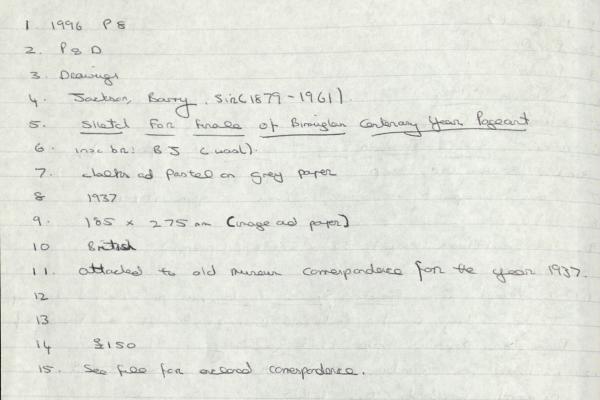 1 1996 P8
2. P & D
3. Drawings
4. Jackson, Barry. Sir (1879-1961).
5. Sketch for finale of Birmingham Centenary Year Pageant
6. insc br: B J (wool).
7. chalks and pastel on grey paper
8 1937
9. 185 x 275 mm (image and paper)
10 British
11. attached to old museum correspondence for the year 1937.
12
13
14 £150
15. See file for enclosed correspondence.